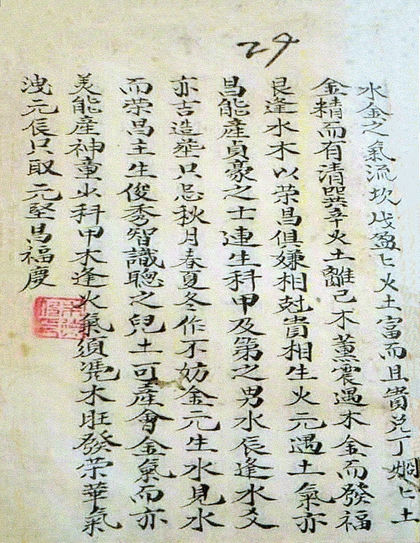 29
水金之氣流坎戊盈匕火土富而且貴兌丁炯匕土
金精而有清巽辛火土離己木薰震遇木金而發福
艮逢水木以荣昌俱嫌相尅貴相生火元遇土氣亦
昌能產貞豪之士連生科甲及第之男水辰逢水爻
亦吉造塋只忌秋月春夏冬作不妨金元生水見水
而荣昌主生俊秀智識聰之兒土可產會金氣而亦
美能產神童少科甲木逢火氣須木旺發荣華氣
洩元辰只取元堅昌福慶